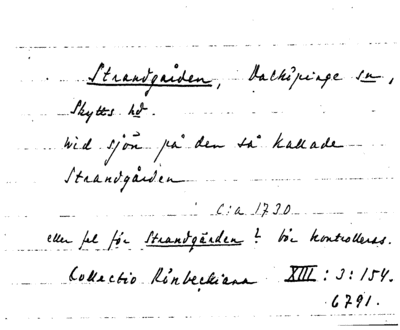 Strandgården, Vacköpinge sn,
Skytts hd.
Wid sjön på den så kallade
Strandgården
c:a 1730
eller fel för Strandgärden? bör kontrolleras.
Collectio Rönbeckiana XIII : 3 : 154.
6791.